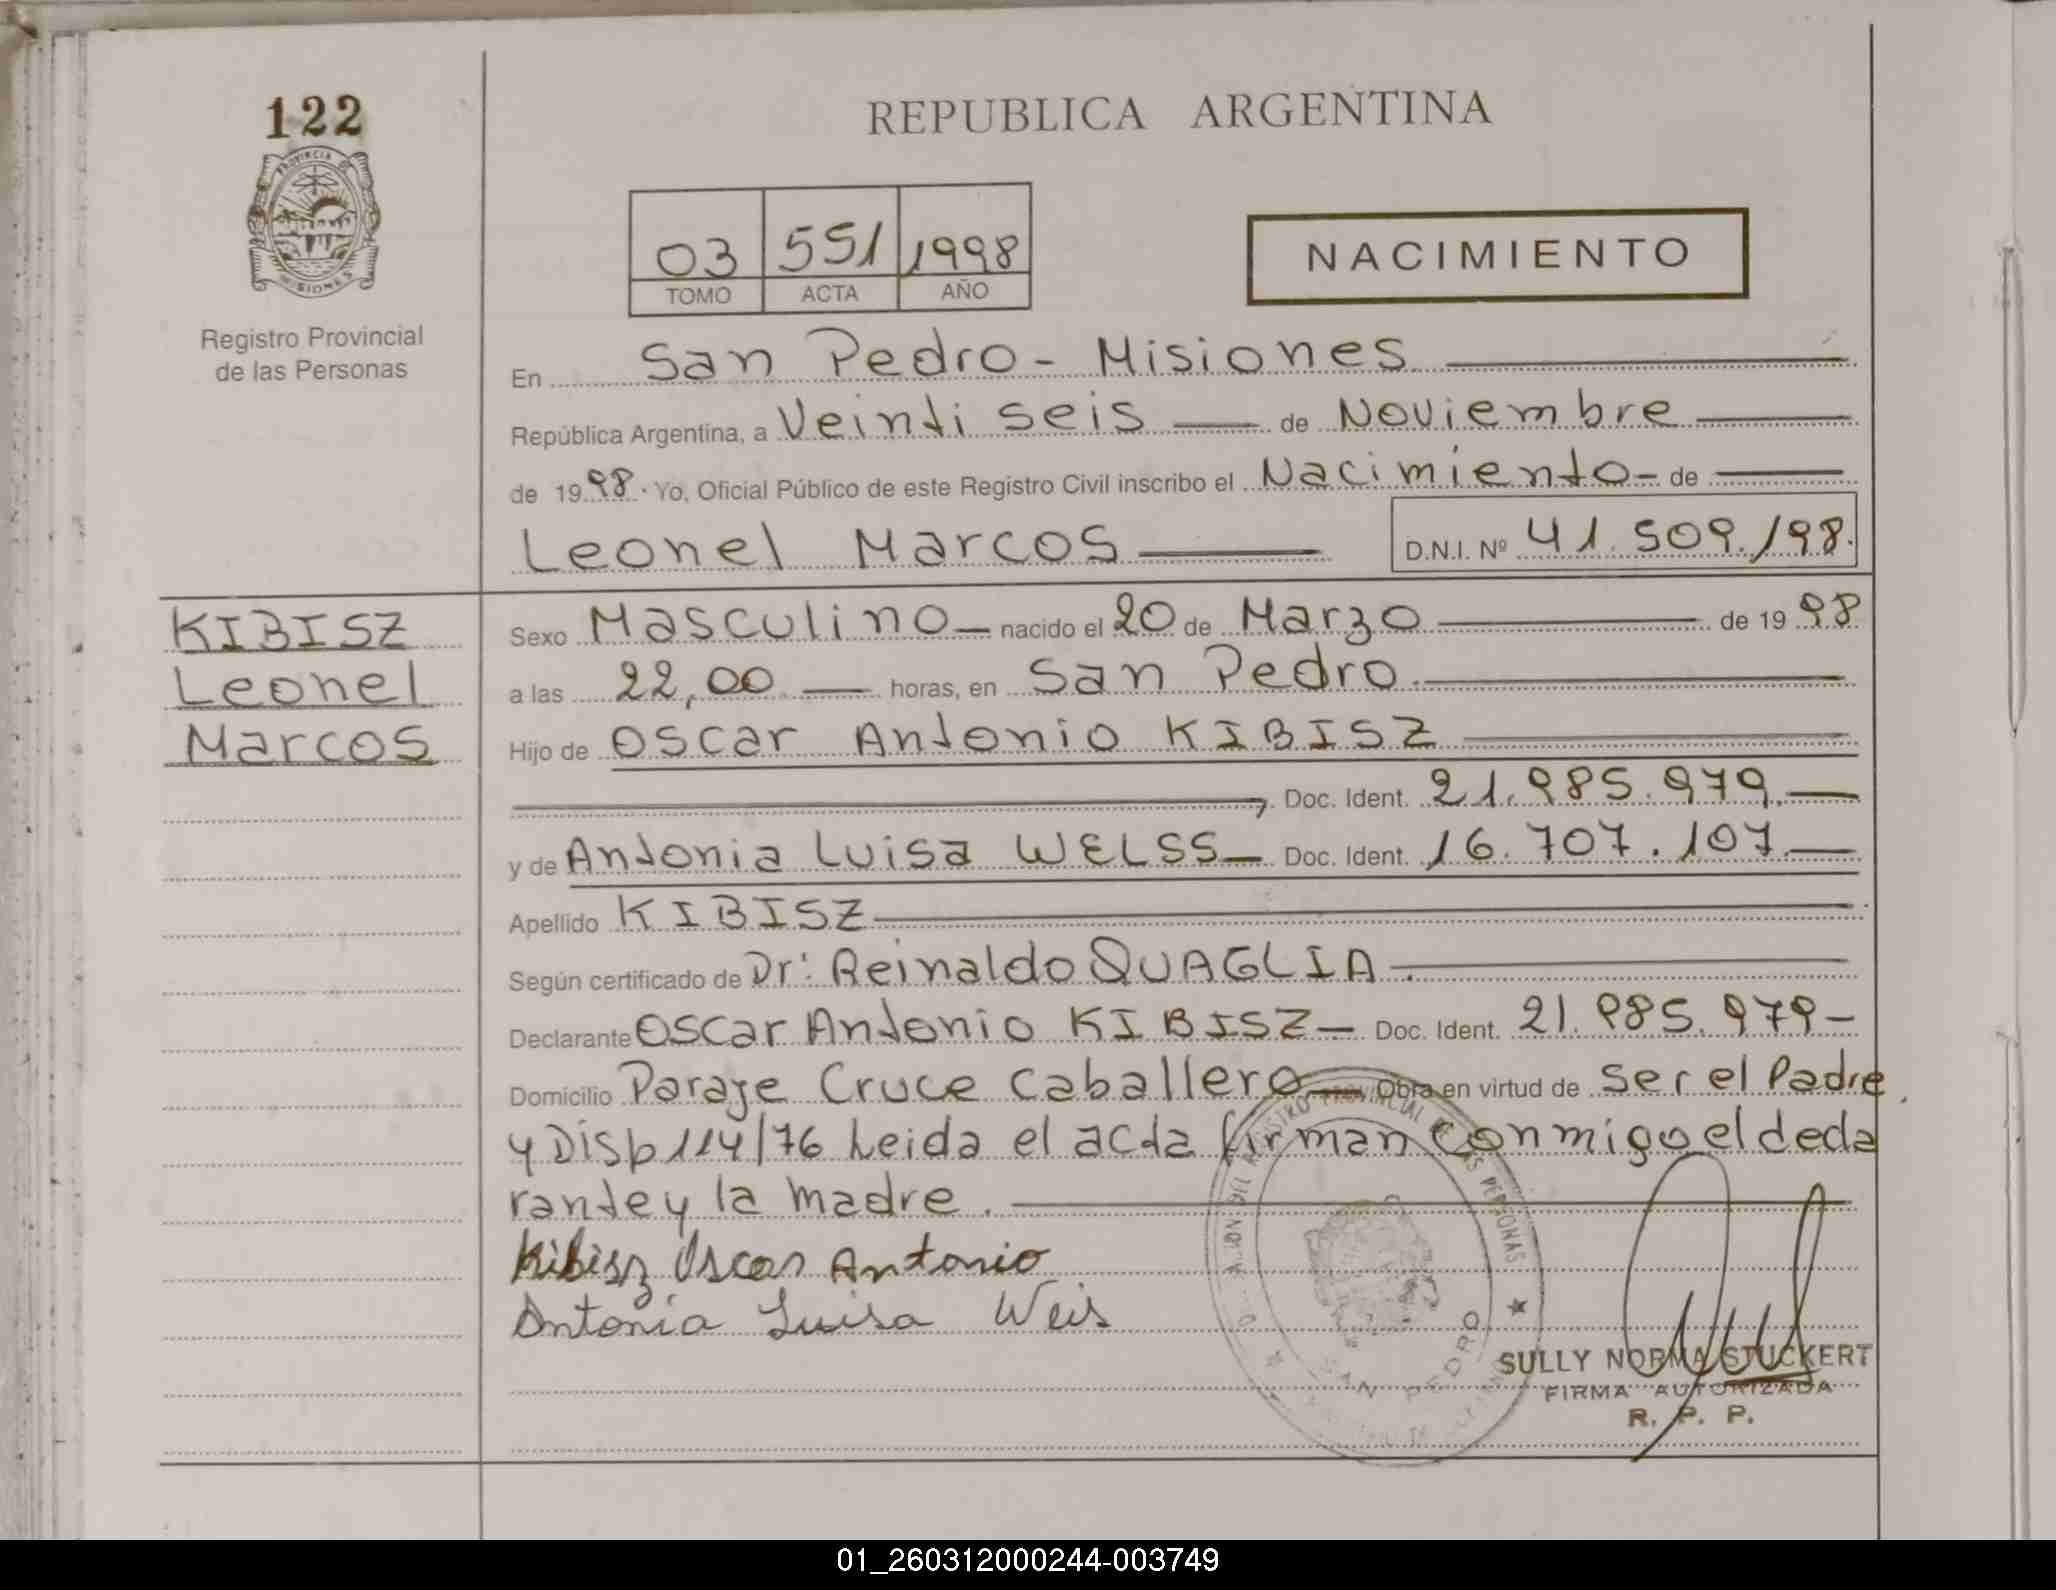 122
PROVINCIA DE
MISIONES
Registro Provincial
de las Personas
REPUBLICA ARGENTINA
03 551 1998
TOMO ACTA AÑO
NACIMIENTO
En San Pedro - Misiones
República Argentina, a Veinti seis de Noviembre
de 1998. Yo, Oficial Público de este Registro Civil inscribo el Nacimiento - de
Leonel Marcos D.N.I. Nº 41.509./98.
KIBISZ
Leonel
Marcos
Sexo Masculino nacido el 20 de Marzo de 1998
a las 22,00 horas, en San Pedro.
Hijo de Oscar Antonio KIBISZ
, Doc. Ident. 21.985.979.
y de Antonia Luisa WELSS Doc. Ident. 16.707.107
Apellido KIBISZ
Según certificado de Dr: Reinaldo QUAGLIA.
Declarante Oscar Antonio KIBISZ Doc. Ident. 21.985.979
Domicilio Paraje Cruce Caballero Obra en virtud de ser el Padre
y Disp 114/76 Leida el acta firman conmigo el decla
rante y la madre.
Kibisz Oscar Antonio
Antonia Luisa Weis
REGISTRO PROVINCIAL DE LAS PERSONAS
SAN PEDRO
SULLY NORMA STUCKERT
FIRMA AUTORIZADA
R. P. P.
01_260312000244-003749